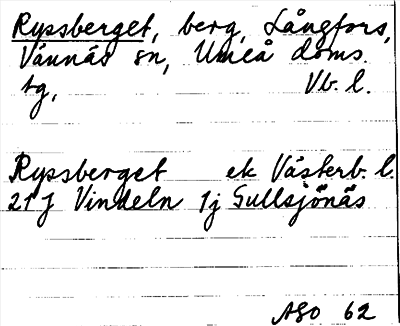 Ryssberget, berg, Långfors,
Vännäs sn, Umeå doms.
tg, Vb. l.
Ryssberget ek Västerb. l.
21 J Vindeln 1j Gullsjönäs
ASO 62